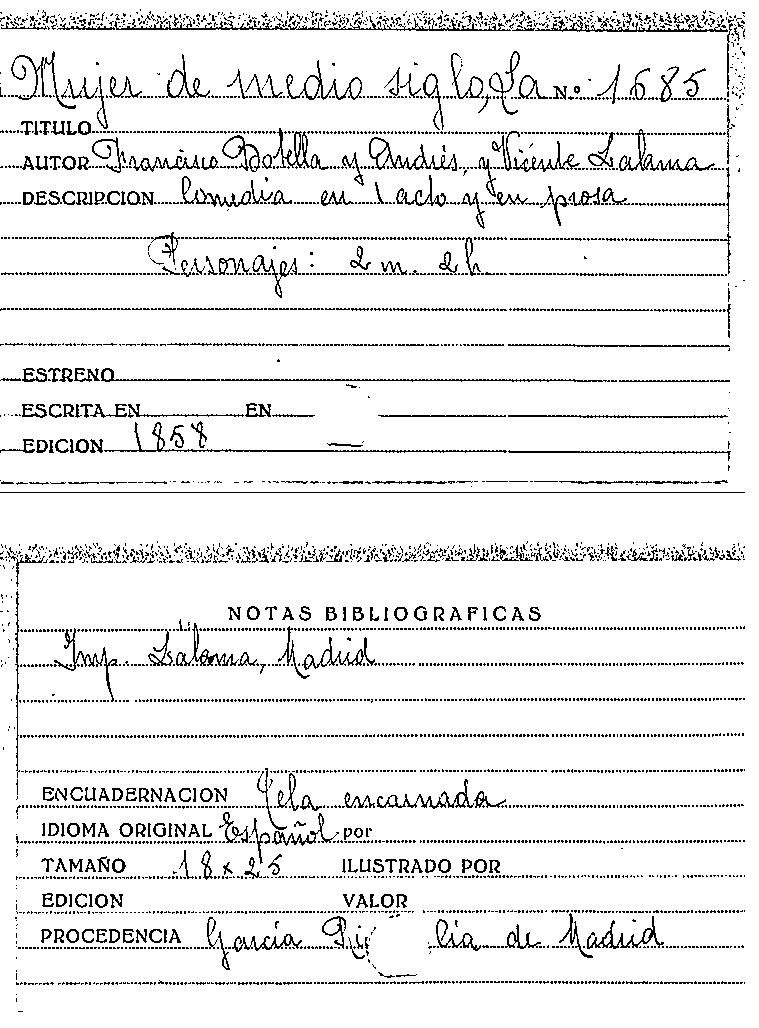 Mujer de medio siglo, La Nº 1685
TITULO
AUTOR Francisco Botella y Andrés, y Vicente Lalama
DESCRIPCION Comedia en 1 acto y en prosa
Personajes: 2 m. 2 h
ESTRENO
ESCRITA EN EN
EDICION 1858
NOTAS BIBLIOGRAFICAS
Imp. Lalama, Madrid
ENCUADERNACION Tela encarnada
IDIOMA ORIGINAL Español por
TAMAÑO 18 x 25 ILUSTRADO POR
EDICION VALOR
PROCEDENCIA García de Madrid